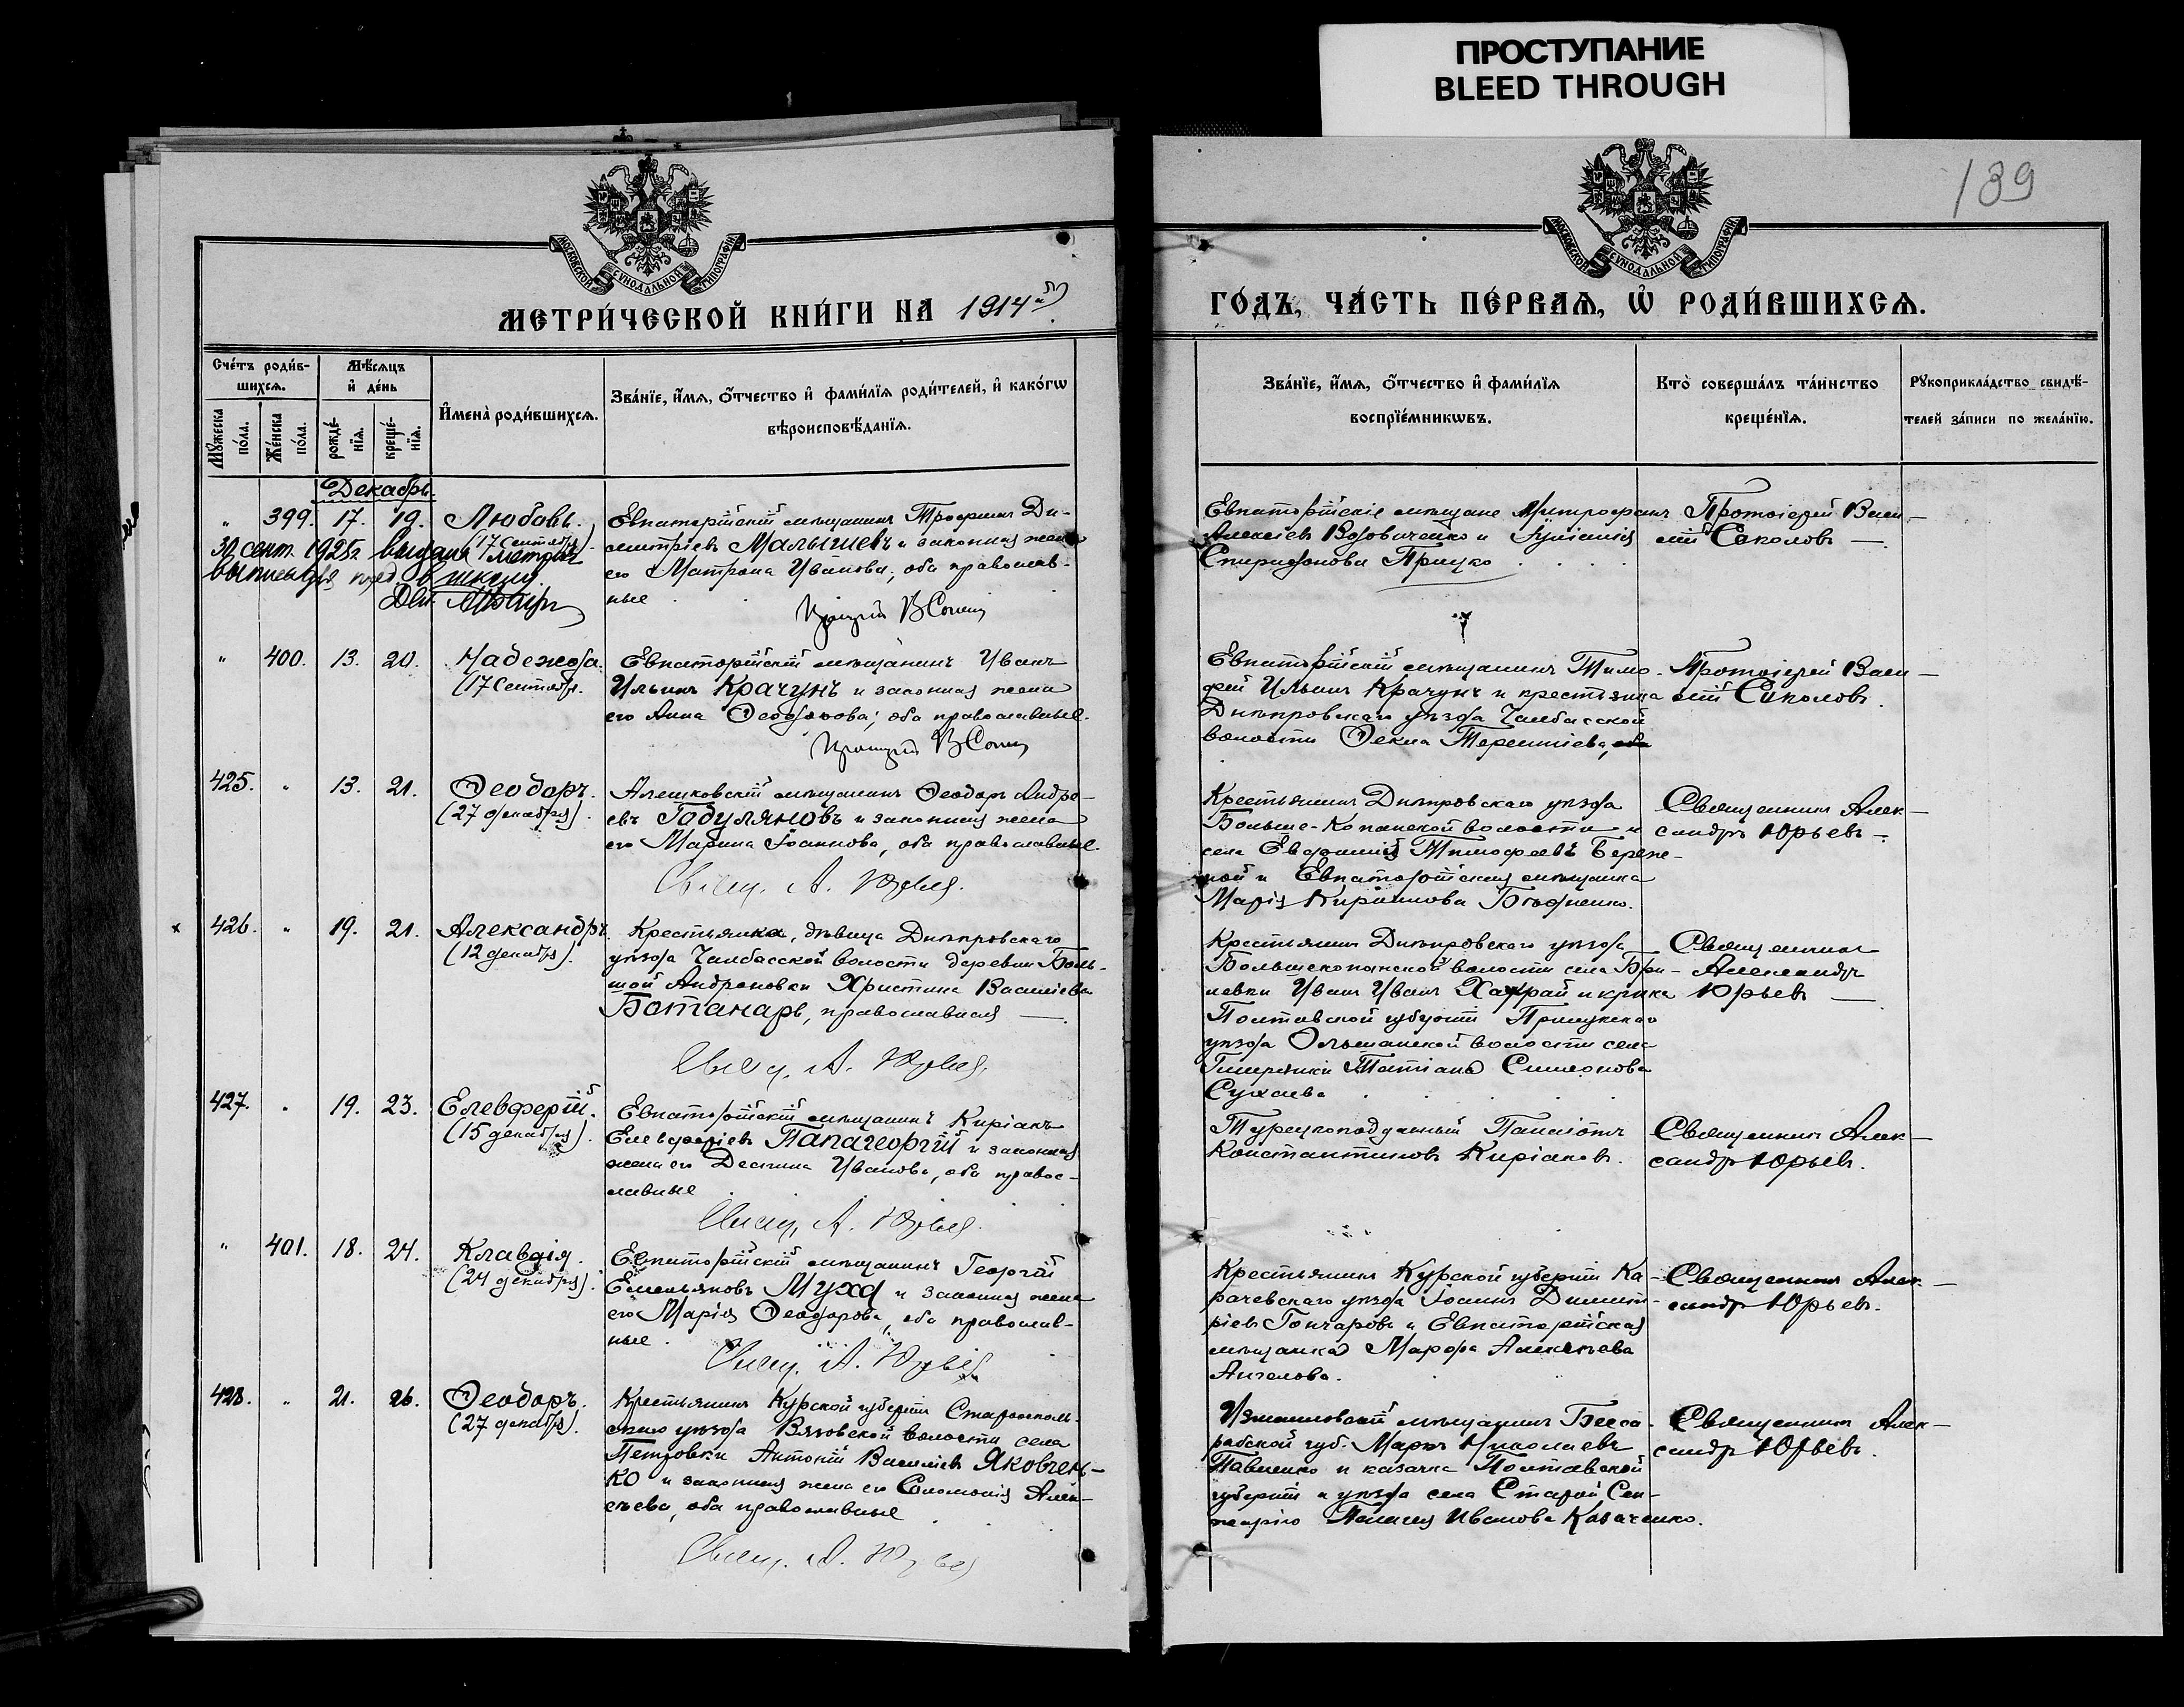 ПРОСТУПАНИЕ
BLEED THROUGH
139
МОСКОВСКОЙ СУНОДАЛЬНОЙ ТИПОГРАФІИ
МОСКОВСКОЙ СУНОДАЛЬНОЙ ТИПОГРАФІИ
МЕТРИ́ЧЕСКОЙ КНИ́ГИ НА 1914й
ГО́ДЪ, ЧА́СТЬ ПЕ́РВАѦ, Ѽ РОДИ́ВШИХСѦ.
Сче́тъ роди́в-
шихсѧ.
Мꙋ́жеска по́ла.
Же́нска по́ла.
Мѣ́сѧцъ
и҆ де́нь
рожде́-
нїѧ.
креще́-
нїѧ.
И҆мена̀ роди́вшихсѧ.
Зва́нїе, и҆́мѧ, ѻ҆́тчество и҆ фами́лїѧ роди́телей, и҆ како́гѡ
вѣроисповѣ́данїѧ.
Зва́нїе, и҆́мѧ, ѻ҆́тчество и҆ фами́лїѧ
воспрїе́мникѡвъ.
Кто̀ соверша́лъ та́инство
креще́нїѧ.
Рꙋкоприкла́дство свидѣ́-
телей за́писи по жела́нїю.
Декабрь.
" 399. 17. 19. Любовь.
(17 Сентября).
30 сент. 1925г. выдана метрич.
выпись в школу.
Евпаторійскій мѣщанинъ Трофимъ Ди-
митріевъ Малышевъ и законная жена
его Матрона Иванова; оба православ-
ные
Евпаторійскіе мѣщане Митрофанъ
Алексіевъ Вдовиченко и
Спиридонова Прицко
Протоіерей Васи-
лій Соколовъ
" 400. 13. 20. Надежда.
(17 Сентября.
Евпаторійскій мѣщанинъ Иванъ
Ильинъ Крачунъ и законная жена
его Анна Ѳеодорова; оба православные.
Евпаторійскій мѣщанинъ Тимо-
фей Ильинъ Крачунъ и крестьянка
Днѣпровскаго уѣзда Чалбасской
волости Ѳекла Терентіева,
Протоіерей Васи-
лій Соколовъ.
425. " 13. 21. Ѳеодоръ.
(27 декабря).
Алешковскій мѣщанинъ Ѳеодоръ Андре-
евъ Годуляновъ и законная жена
его Марина Іоаннова, оба православные.
Свящ. А. Юрьев.
Крестьянинъ Днѣпровскаго уѣзда
Больше-Копанской волости и
села Евфимій Тимофеевъ Береж-
ной и Евпаторійская мѣщанка
Марія Кириллова
Священникъ Алек-
сандръ Юрьевъ.
426. " 19. 21. Александръ.
(12 декабря).
Крестьянка, дѣвица Днѣпровскаго
уѣзда Чалбасской волости деревни Боль-
шой Андроновки Христина Василіева
Ботанарь, православная
Свящ. А. Юрьев.
Крестьянинъ Днѣпровскаго уѣзда
Большекопанской волости села Бри-
левки Иванъ Иванъ и крѣка
Полтавской губерніи Прилукскаго
уѣзда Ольшанской волости села
Татіана Симеонова
Сухаева
Священникъ
Александръ
Юрьевъ
427. " 19. 23. Елевферій.
(15 декабря).
Евпаторійскій мѣщанинъ Киріакъ
Елевферіевъ Папагеоргій и законная
жена его Деспина Иванова, оба правос-
лавные
Свящ. А. Юрьев.
Турецкоподданный Панаіотъ
Константиновъ Киріаковъ.
Священникъ Алек-
сандръ Юрьевъ.
" 401. 18. 24. Клавдія.
(24 декабря).
Евпаторійскій мѣщанинъ Георгій
Емельяновъ Муха и законная жена
его Марія Ѳеодорова, оба православ-
ные.
Свящ. А. Юрьев.
Крестьянинъ Курской губерніи Ка-
рачевскаго уѣзда Іоаннъ Димит-
ріевъ Гончаровъ и Евпаторійская
мѣщанка Марфа Алексѣева
Ангелова.
Священникъ Алек-
сандръ Юрьевъ.
428. " 21. 26. Ѳеодоръ.
(27 декабря).
Крестьянинъ Курской губерніи Старосколь-
скаго уѣзда Вязовской волости села
Петровки Антоній Василіевъ Яковчен-
ко и законная жена его Соломонія Алек-
сѣева, оба православные
Свящ. А. Юрьев
Измаиловскій мѣщанинъ Бесса-
рабской губ. Маркъ Николаевъ
Павленко и казачка Полтавской
губерніи и уѣзда села Старой Сен-
жары Пелагія Иванова Казаченко.
Священникъ Алек-
сандръ Юрьевъ.